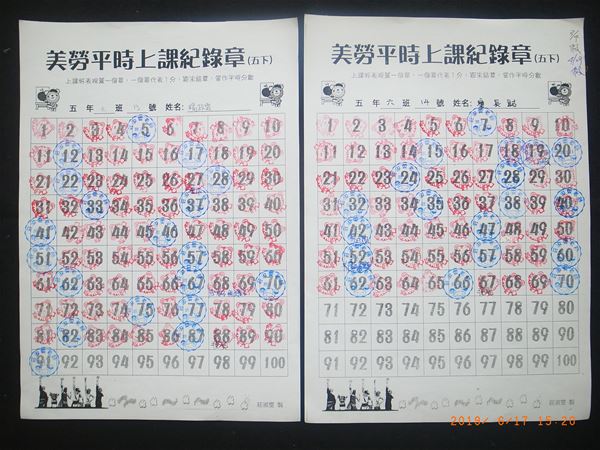 美勞平時上課紀錄章(五下)
上課好表現蓋一個章，一個章代表1分，期末結算，當作平時分數
五年 班 13 號 姓名:
1 2 3 4 5 6 7 8 9 10
11 12 13 14 15 16 17 18 19 20
21 22 23 24 25 26 27 28 29 30
31 32 33 34 35 36 37 38 39 40
41 42 43 44 45 46 47 48 49 50
51 52 53 54 55 56 57 58 59 60
61 62 63 64 65 66 67 68 69 70
71 72 73 74 75 76 77 78 79 80
81 82 83 84 85 86 87 88 89 90
91 92 93 94 95 96 97 98 99 100
莊淑雯 製
美勞平時上課紀錄章(五下)
上課好表現蓋一個章，一個章代表1分，期末結算，當作平時分數
五年 六 班 14 號 姓名:
1 2 3 4 5 6 7 8 9 10
11 12 13 14 15 16 17 18 19 20
21 22 23 24 25 26 27 28 29 30
31 32 33 34 35 36 37 38 39 40
41 42 43 44 45 46 47 48 49 50
51 52 53 54 55 56 57 58 59 60
61 62 63 64 65 66 67 68 69 70
71 72 73 74 75 76 77 78 79 80
81 82 83 84 85 86 87 88 89 90
91 92 93 94 95 96 97 98 99 100
莊淑雯 製
2010/ 6/17 15:20